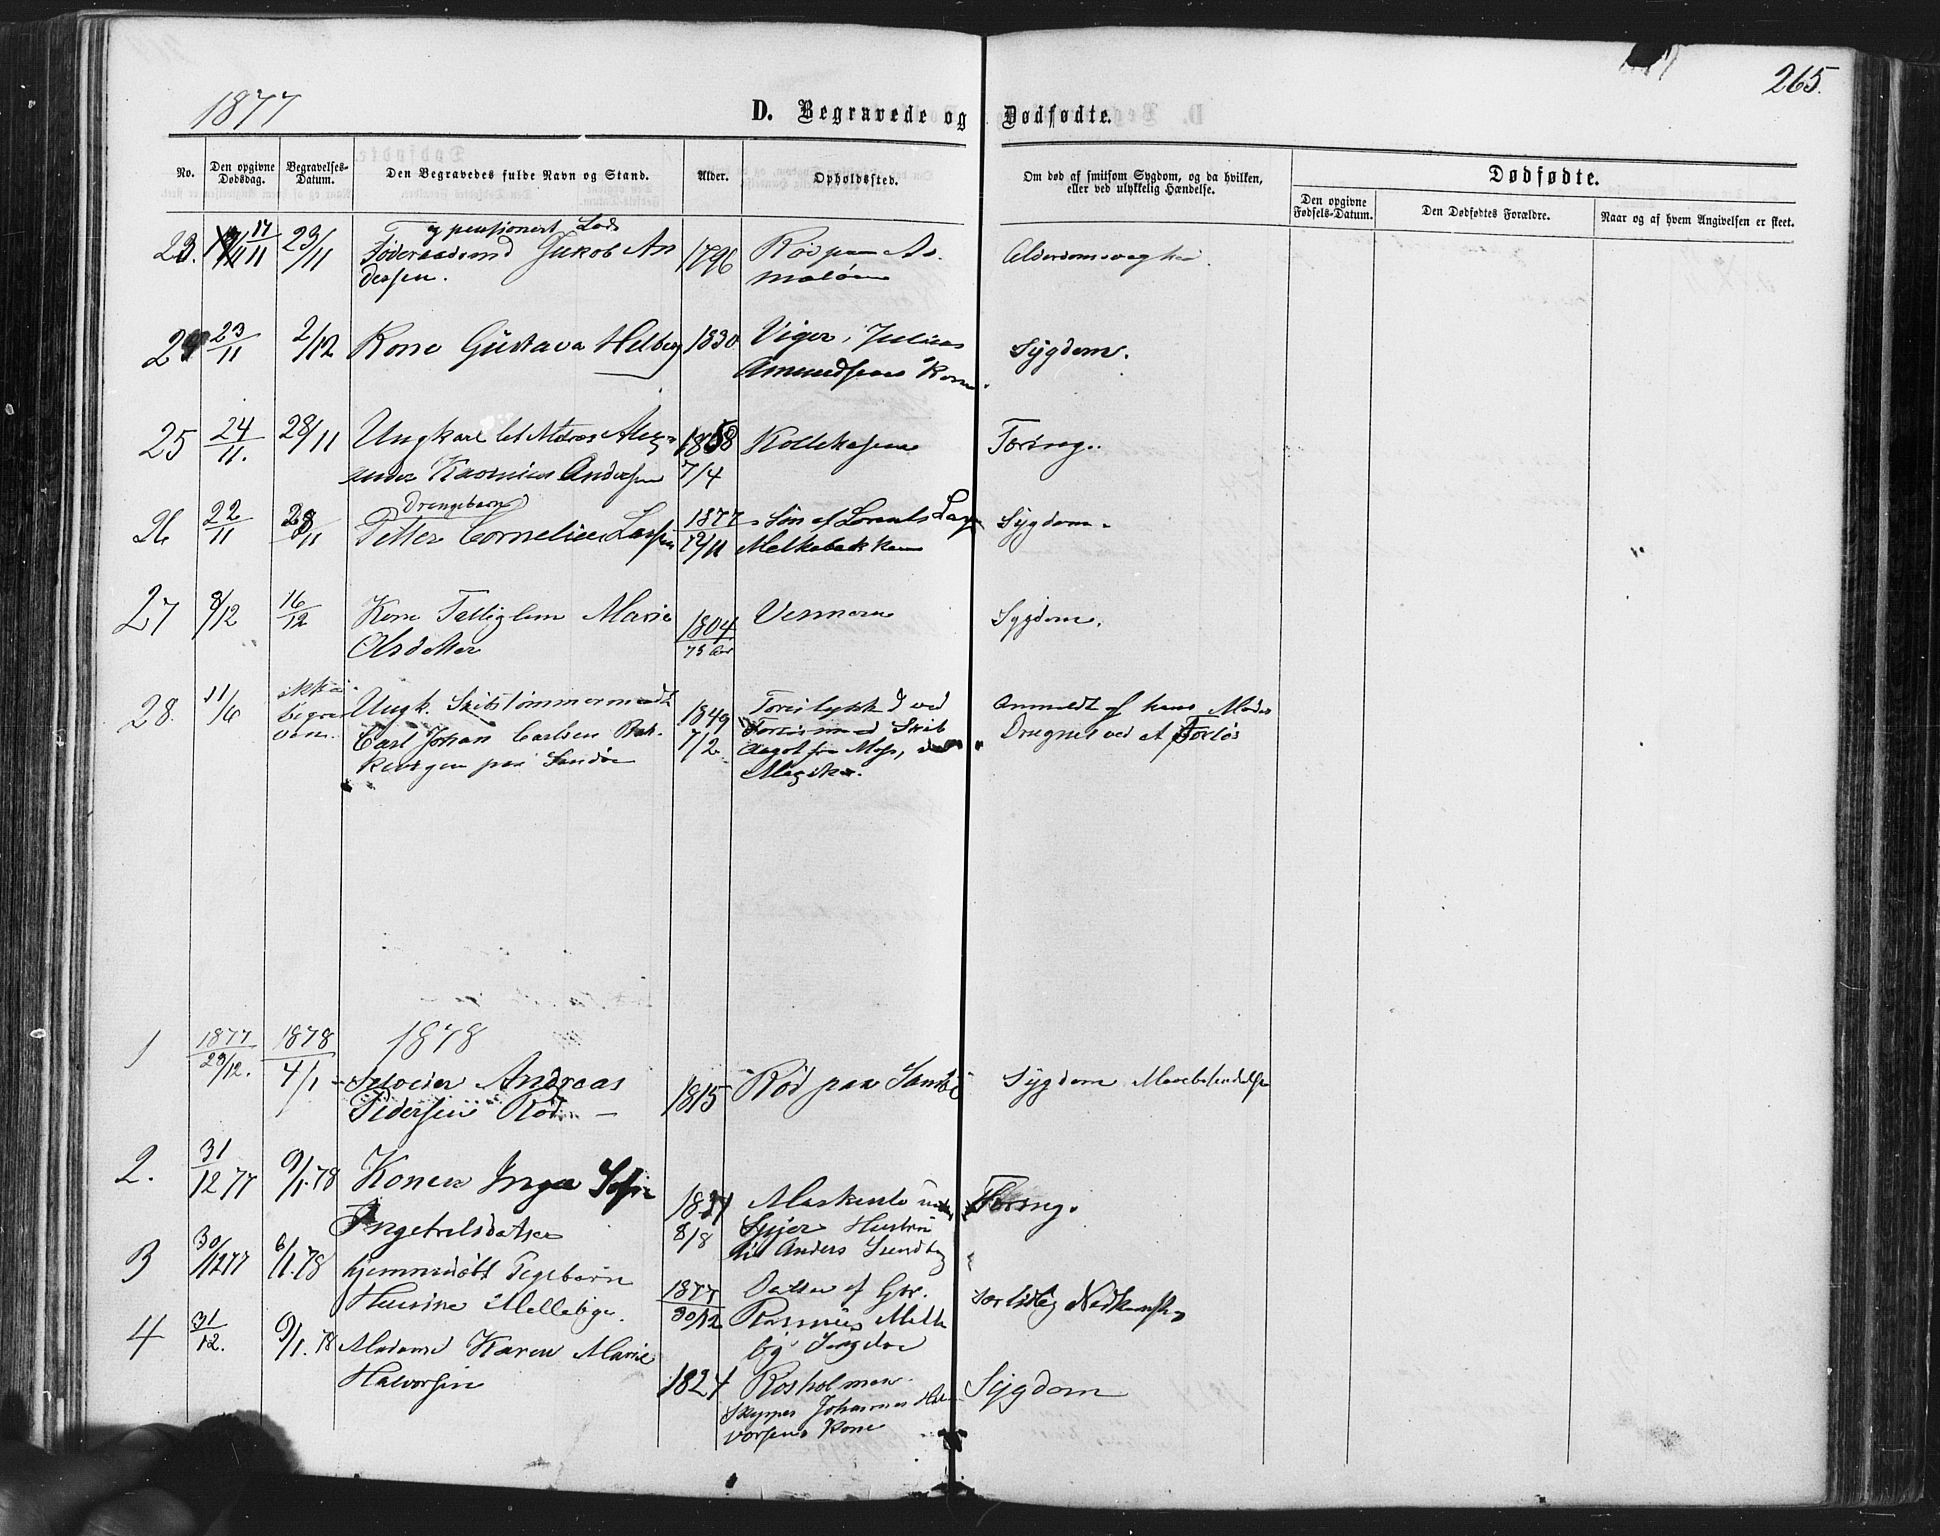 265.
1877
D. Begravede og Dødfødte.
No.
Den opgivne Dødsdag.
Begravelses-Datum.
Den Begravedes fulde Navn og Stand.
Alder.
Opholdssted.
Om død af smitsom Sygdom, og da hvilken, eller ved ulykkelig Hændelse.
Dødfødte.
Den opgivne Fødsels-Datum.
Den Dødfødtes Forældre.
Naar og af hvem Angivelsen er skeet.
og pensioneret Lods
23. 17/11 23/11 Føderaadsmd Jakob An 1796 Rød paa As Alderdomssvaghed.
dersen. maløen
24 23/11 2/12 Kone Gustava Helberg 1830 Viger, Julius Sygdom.
Amundsens Kone.
25 24/11. 28/11 Ungkarl Matros Alex 1858 Kollekasen Tæring.
ander Rasmus Andersen 7/4
Drengebarn
26 22/11 28/11 Petter Cornelius Larsen 1877 Søn af Lorents Lars Sygdom.
12/11 Melkebakken
27 8/12 16/12 Kone Marie 1804 Vennern Sygdom.
Olsdatter 73 Aar
28. 11/6 ikke Ungk. Skibstømmermand 1849 Forulykket ved Anmeldt af hans Moder
begra Carl Johan Carlsen Bak 7/2 Skib Druknet ved et Forlis
ven. kevigen paa Sandø Aagot fra Moss,
Mexiko.
1 1877 1878 1878
29/12. 4/1 Andreas 1815 Rød paa Sygdom
Pedersen Rød
2. 31/12 77 9/1.78 Konen Inga Sofie 1831 Tæring.
Ingebretsdatter 8/8 Spjær Hustru
til Anders Sundby
3 30/12 77 6/1.78 hjemmedøbt Pigebarn 1877 Datter af Gbr.
30/12 Rasmus
4 31/12. 9/1.78 Madame Karen Marie
Halvorsen 1824 Rosholmen Sygdom
Skipper Johannes Hal
vorsens Kone